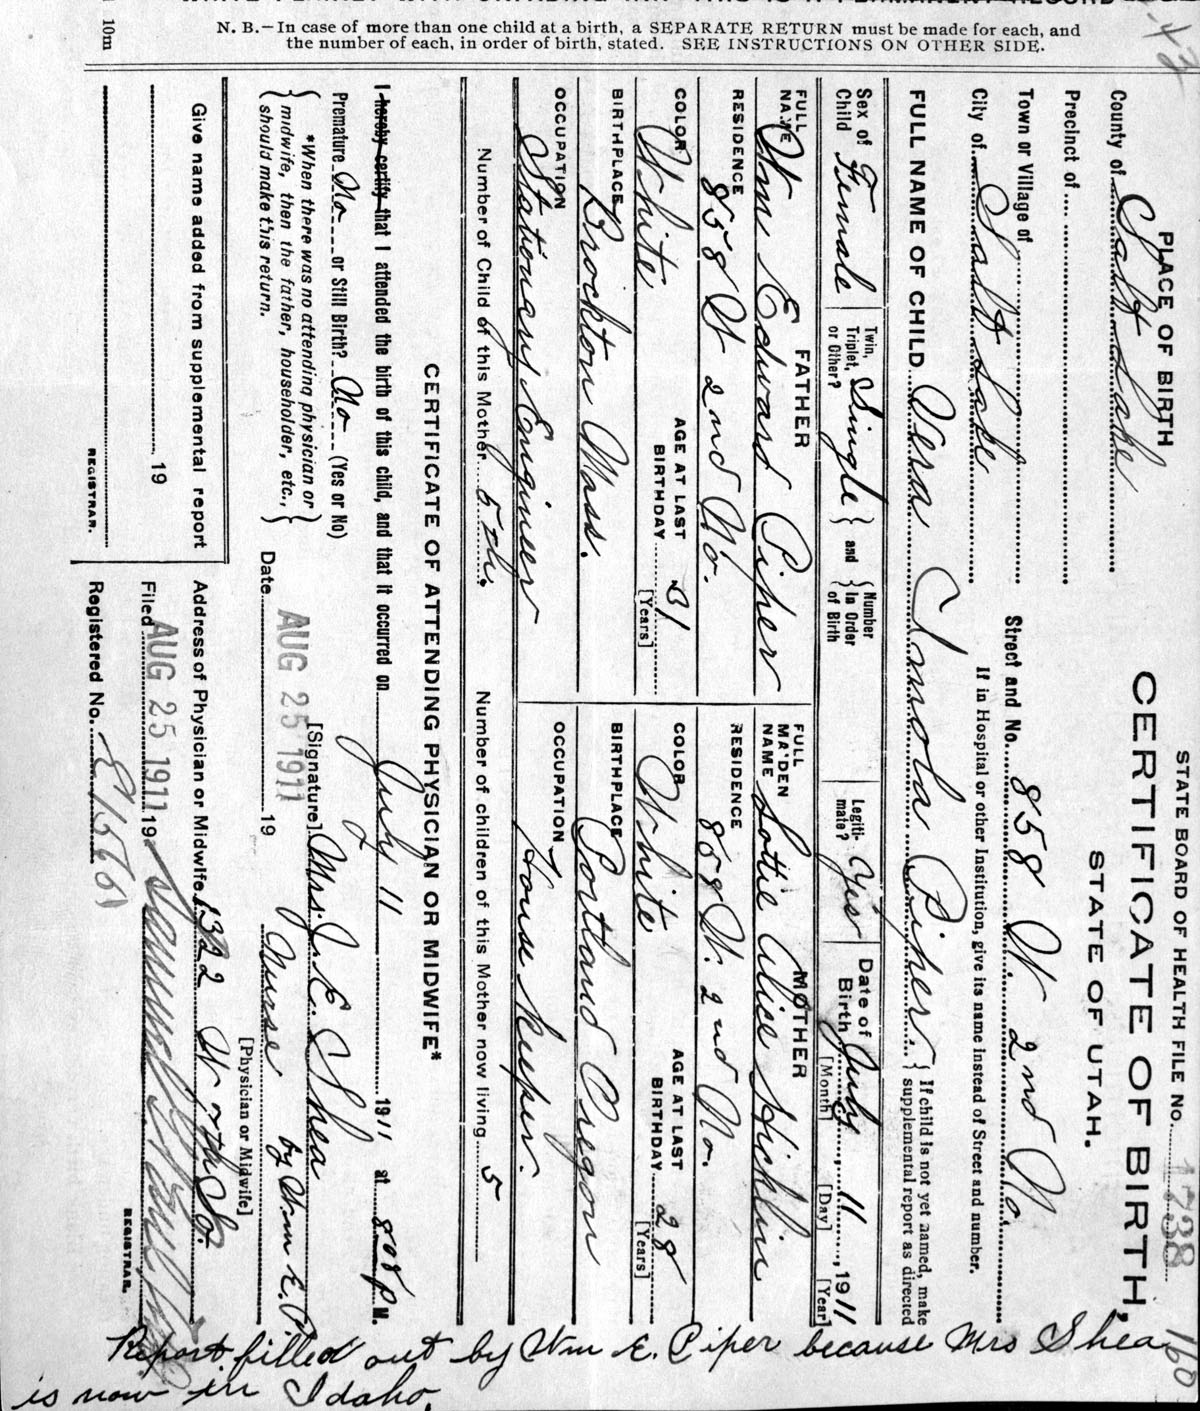 N. B.—In case of more than one child at a birth, a SEPARATE RETURN must be made for each, and
the number of each, in order of birth, stated. SEE INSTRUCTIONS ON OTHER SIDE.
10m
STATE BOARD OF HEALTH FILE NO. 1738
160
PLACE OF BIRTH
CERTIFICATE OF BIRTH,
STATE OF UTAH.
County of Salt Lake
Precinct of
Town or Village of
Street and No. 858 W. 2nd No.
City of Salt Lake
If in Hospital or other Institution, give its name instead of Street and number.
FULL NAME OF CHILD Vera Piper.
If child is not yet named, make
supplemental report as directed
Sex of Child Female
Twin, Triplet, or Other? Single
and Number In Order of Birth
Legiti-mate? Yes
Date of Birth July 11, 1911
[Month] [Day] [Year]
FATHER
FULL NAME Wm Edward Piper
RESIDENCE 858 W 2nd No.
COLOR White
AGE AT LAST BIRTHDAY 31
[Years]
BIRTHPLACE Brockton Mass.
OCCUPATION Stationary Engineer
MOTHER
FULL MAIDEN NAME Lottie Alice
RESIDENCE 858 W. 2nd No.
COLOR White
AGE AT LAST BIRTHDAY 28
[Years]
BIRTHPLACE Portland Oregon
OCCUPATION House keeper.
Number of Child of this Mother 5th.
Number of children of this Mother now living 5
CERTIFICATE OF ATTENDING PHYSICIAN OR MIDWIFE*
I hereby certify that I attended the birth of this child, and that it occurred on July 11 1911 at 8 P M.
Premature No or Still Birth? No (Yes or No)
[Signature] Mrs. J. E. Shea
*When there was no attending physician or
midwife, then the father, householder, etc.,
should make this return.
by Wm E. P
[Physician or Midwife]
Date AUG 25 1911 19 Nurse
Give name added from supplemental report
19
REGISTRAR.
Address of Physician or Midwife 1322 W
Filed AUG 25 1911 19
REGISTRAR.
Registered No. E1566
Report filled out by Wm E. Piper because Mrs Shea
is now in Idaho.